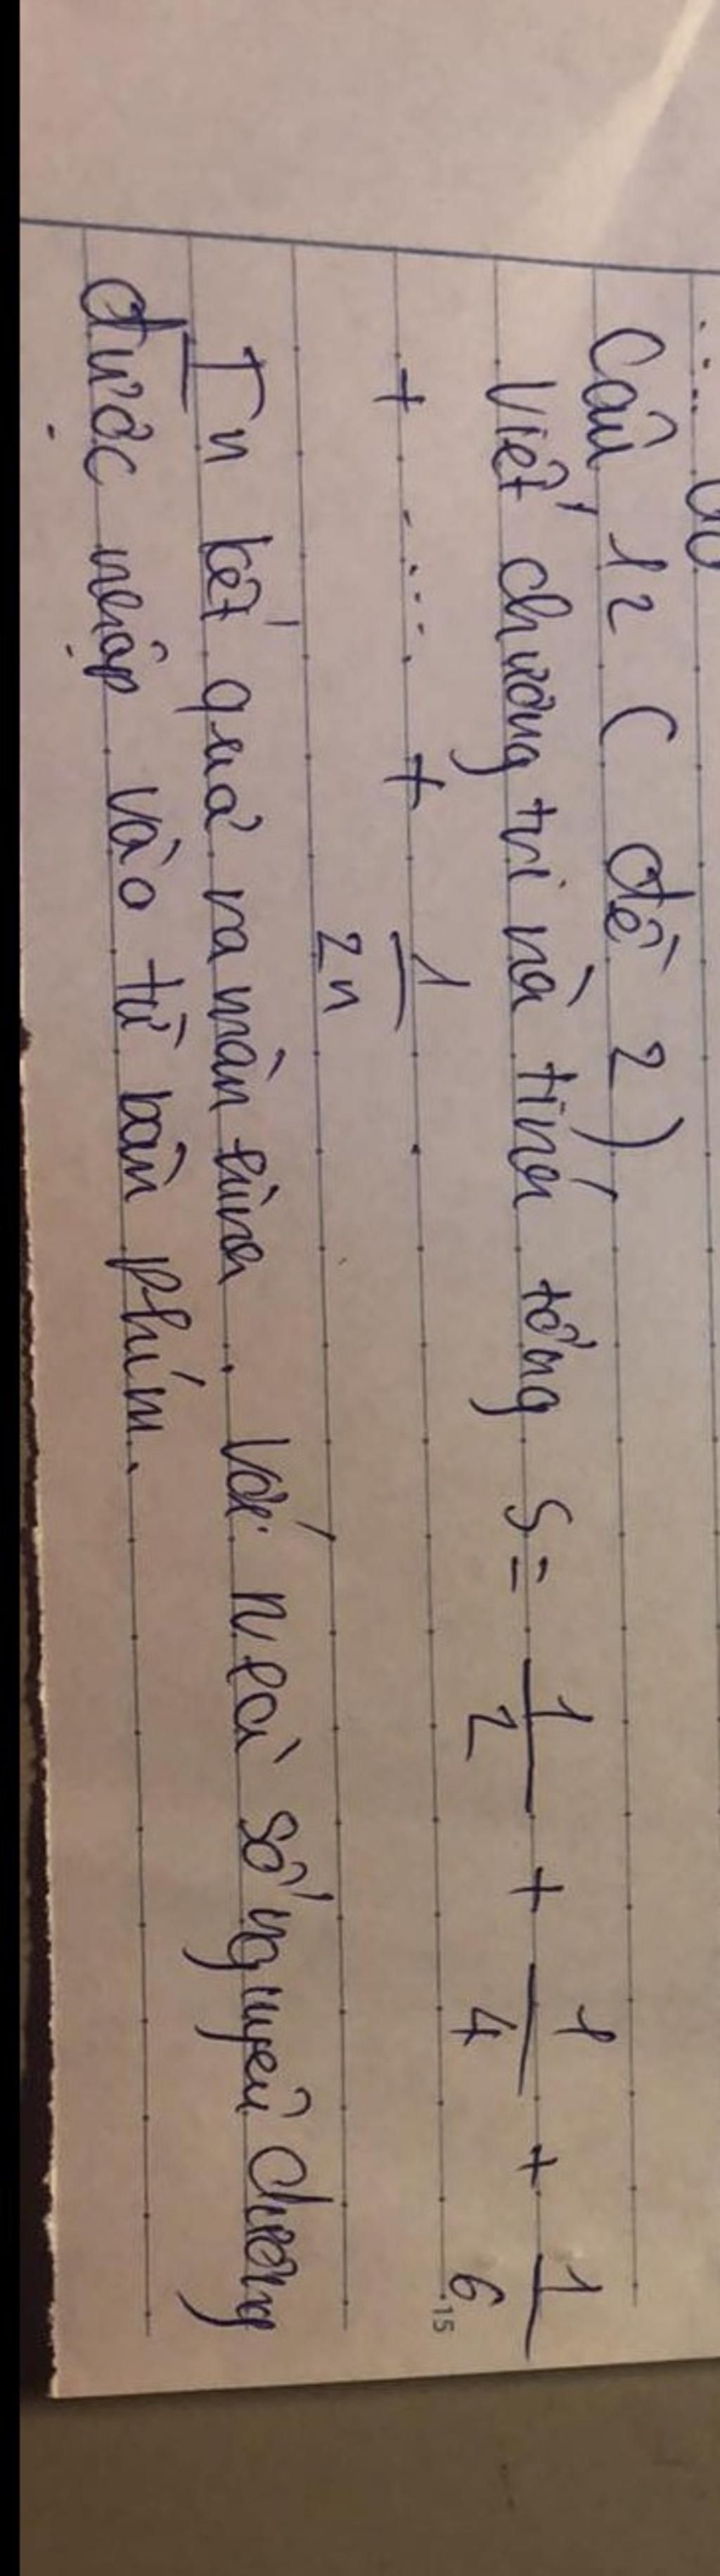 Câu 12 ( đề 2)
Viết chương trình tính tổng S = 1/2 + 1/4 + 1/6
+ ..... + 1/2n
In kết quả ra màn hình. Với n là số nguyên dương
được nhập vào từ bàn phím.
15